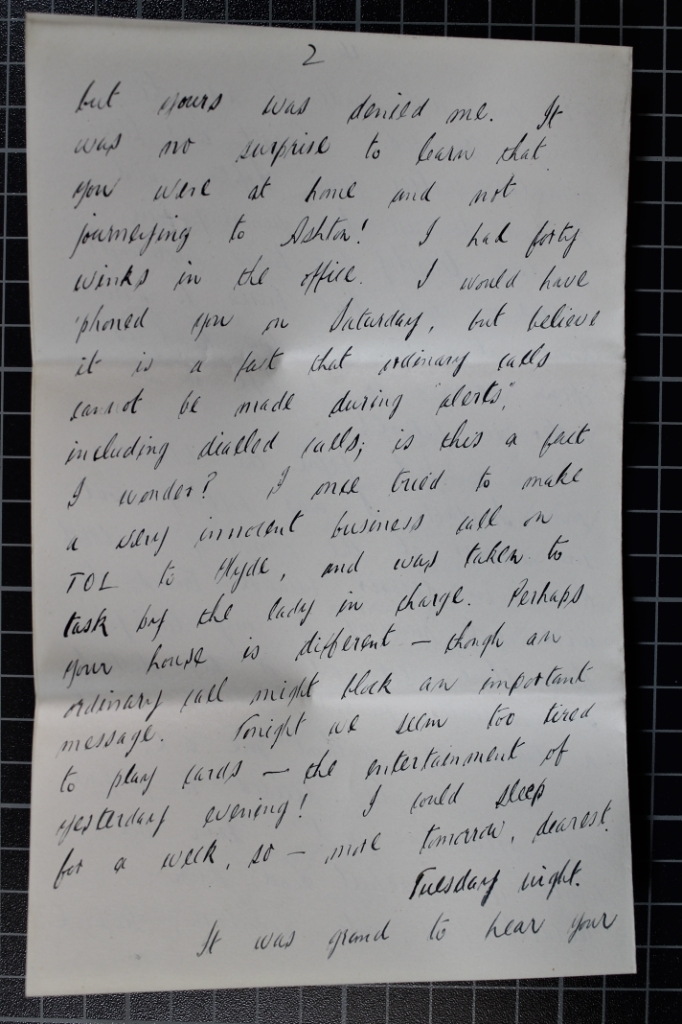 2
but yours was denied me. It
was no surprise to learn that
you were at home and not
journeying to Ashton! I had forty
winks in the office. I would have
'phoned you on Saturday, but believe
it is a fact that ordinary calls
cannot be made during "alerts",
including dialled calls; is this a fact
I wonder? I once tried to make
a very innocent business call on
TOL to Hyde, and was taken to
task by the lady in charge. Perhaps
your house is different — though an
ordinary call might block an important
message. Tonight we seem too tired
to play cards — the entertainment of
yesterday evening! I could sleep
for a week, so — more tomorrow, dearest.
Tuesday night.
It was grand to hear your